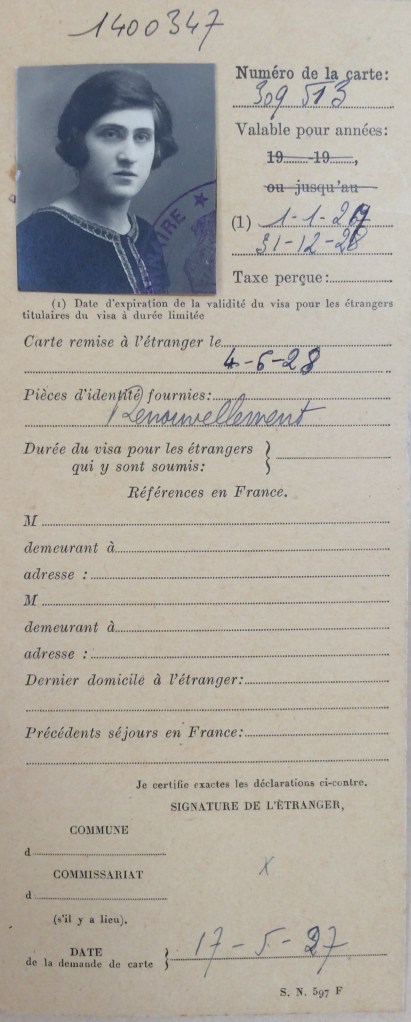 1400347
Numéro de la carte:
309 513
Valable pour années:
19......-19......,
ou jusqu'au
(1) 1-1-27
31-12-28
Taxe perçue:
(1) Date d'expiration de la validité du visa pour les étrangers
titulaires du visa à durée limitée
Carte remise à l'étranger le
4-6-28
Pièces d'identité fournies:
Renouvellement
Durée du visa pour les étrangers }
qui y sont soumis:
Références en France.
M
demeurant à
adresse :
M
demeurant à
adresse :
Dernier domicile à l'étranger:
Précédents séjours en France:
Je certifie exactes les déclarations ci-contre.
SIGNATURE DE L'ÉTRANGER,
COMMUNE
d
COMMISSARIAT
x
d
(s'il y a lieu).
DATE
de la demande de carte } 17-5-27
S. N. 597 F